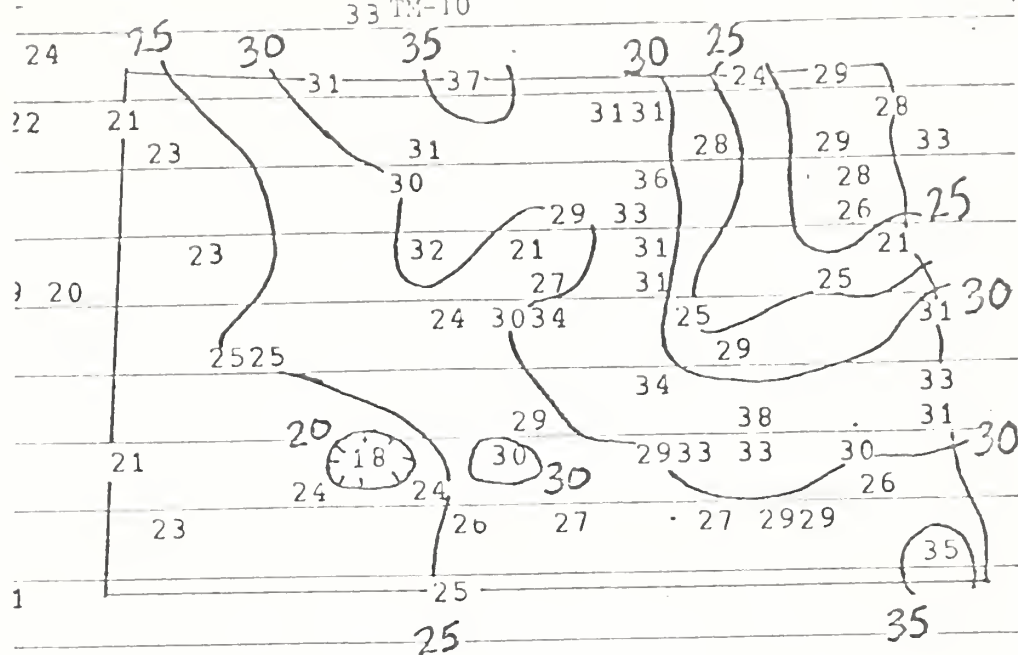 33 TM-10
24 25 30 35 30 25
31 37 24 29
22 21 3131 28
23 31 28 29 33
30 36 28
29 33 26 25
23 32 21 31 21
20 27 31 25 30
24 3034 25 31
2525 29
34 33
29 38 31
20 30
21 18 30 2933 33 30
24 24 30 26
23 26 27 27 2929
35
1 25
25 35